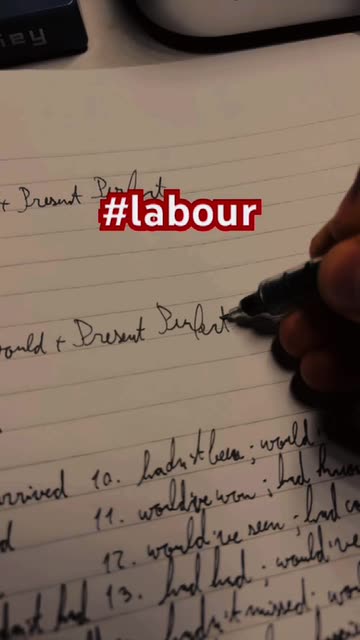 + Present Perfect
#labour
would + Present Perfect
arrived 10. hadn't been; would
11. would've won; had known
12. would've seen; had
had 13. had had; would've
hadn't missed; would